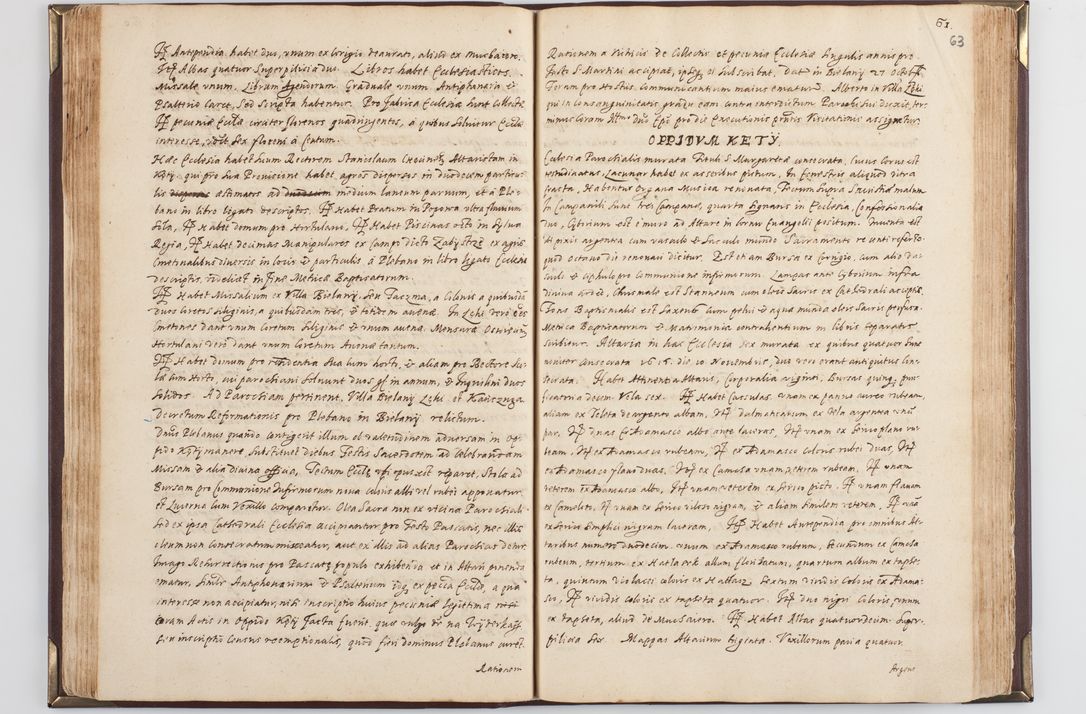 Itē Antipendia habet duo, unum ex corigio deaurati, aliud ex Muchaiero.
Itē Albas quatuor Superpilicia duo. Libros habet Ecclesiasticos
Missale unum. Librum Agendorum. Graduale unum. Antiphonariū &
Psalteriū caret, sed scripta habentur. Pro fabrica Ecclesiæ sunt collectæ
Itē pecuniæ Ecclæ circiter florenos quadringentos, a quibus solvitur Ecclæ
interesse, sex floreni a Centum.
Hæc Ecclesia habet suum Rectorem Stanislaum Altaristam in
Kęty qui pro sua Provisione habet agros dispersos in duodecim particu-
lis æstimatos ad medium laneum parvum, et a Ple-
bano in libro legati descriptos. Itē Habet Pratum in ultra fluvium
Sola, Itē Habet domum pro Hortulani, Itē Habet Piscinas octo in Sylva
Regia, Itē Habet decimas Manipulares ex Campo dicto Zabystrze ex agris
Cmetonalibus diversis in locis & particulis a Plebano in libro legato Ecclesiæ
descriptis in fine Metricæ Baptisatorum.
Itē Habet Missalium ex Villa Bielany, seu Łaczna, a Colonis a quibusdā
duos Coretos siliginis, a quibusdam tres, & totidem avenæ. In Łeki vero oēs
Cmetones dant unum Coretum siliginis & unum avenæ. Mensuræ
Hortulani vero dant unum Coretum Avenæ tantum.
Itē Habet domum pro residentia sua cum horto, & aliam pro Rectore Sco-
læ cum Horto, cui parochiani solvunt duos gr̄ in annum, & Inquilini duos
solidos. Ad Parochiam pertinent, Villa Bielany Łeki et Kańczuga.
Decretum Reformationis pro Plebano in Bielany relictum.
Dnūs Plebanus quando contigerit illum ob valetudinem adversam in op-
pido Kęty manere substituet diebus Festis Sacerdotem ad celebrandam
Missam & alia divina officia, Tectum Ecclæ ubi opus est reparet, Stola ad
Bursam pro Communione Infirmorum nova coloris albi vel rubei apponatur,
et Lucerna cum Vexillo comparetur. Olea Sacra non ex vicina Parochiali
sed ex ipsa Cathedrali Ecclesia accipiantur pro Festo Paschatis, nec illis
oleum non consecratum misceatur, aut ex illis ad alias Parochias detur,
Imago Resurrectionis pro Paschate populo exhibenda et in Altari ponenda
ematur, simlr Antiphonarium & Psalterium idq ex pecūa Ecclæ, a qua
interesse non accipiatur, nisi inscriptio huius pecuniæ legitima
coram Actis in Oppido Kęty facta fuerit, quæ vulgo dr̄ na Wyderkaff,
seu inscriptio Census reemptionalis, quod fieri dominus Plebanus curet.
Rationem
61.
63
Rationem a Vitricis de Collectis et pecunia Ecclesiæ singulis annis pro
Festo S. Martini accipiat, ipsisq ei subscribat, Dat in Bielany 27 Octobr.
Ferrum pro Hostiis Communicantium maius ematur. Alberto in Villa Łeki
qui in consanguinitatis gradu cum iuncta interdictum Parochi sui duxit, ter-
minus coram Illmo Dno Epō pro die executionis præntis Visitationis assignatur.
OPPIDVM KETŸ.
Ecclesia Parochialis murata Tituli S. Margaretæ consecrata, cuius Cornu est
testudinatus, Lacunar habet ex asseribus pictum, In fenestris aliquod vitra
fracta, Habentur Organa Musica renovata, Tectum supra Sacristiā malum
In Campanili sunt tres Campanæ, quarta signans in Ecclesia, Confessionalia
duo, Cyborium est e muro ad Altare in Cornu Euangelii positum. Inventa est
in pixis argentea cum vasculo & Sacculo mundo Sacramentū re concreferto
quod octavo die renovari dicitur. Est etiam Bursa ex corigio, cum alio va-
sculo & ciphulo pro Communione infirmorum. Lampas ante Cyborium infra
divina ardet, Chrismale est Stanneum cum oleis sacris ex Cathedrali acceptis.
Fons Baptismalis est saxeus cum pelvi & aqua munda oleis Sacris perfusa.
Metrica Baptisatorum & Matrimonia contrahentium in libris separatis
scribitur. Altaria in hac Ecclesia sex murata ex quibus quatuor sunt
noviter consecrata 1616. die 20 Novembris, duo vero erant antiquitus con-
secrata. Habet Attinentia Altaris, Corporalia viginti, Bursas quinq, puri-
ficatoria decem. Vela sex. Itē Habet Casulas unam ex panno aureo rubeam,
aliam ex Teleta de argento albam, Itē dalmaticarum ex tela argentea unū
par. Itē duas ex Adamasco albo ante laceras, Itē unam ex serico plano ru-
beam, Itē ex Adamasco rubeam, Itē ex Adamasco coloris rubei duas, Itē
ex Adamasco flavo duas. Itē ex Camcha unam veterem rubeam. Itē unam
veterem ex Adamasco albo, Itē unam veterem ex serico picto. Itē unam flavam
ex Cameloto, Itē unam ex serico villoso nigram, & aliam similem veterem, Itē unā
ex serico simplici nigram laceram, Itē Habet Antependia pro omnibus Al-
taribus numero duodecim. unum ex Adamasco rubeum, secundum ex Camcha
rubeum, tertium ex Hatlasek album floridatum, quartum album ex taphe-
ta, quintum violacei coloris ex Hatlasz. Sextum viridis coloris ex Adama-
sco, Itē viridis coloris ex tapheta quatuor. Itē duo nigri coloris, unum
ex tapheta, aliud de Muchaiero. Itē Habet Albas quatuordecim. Super-
piliceas sex. Mappas Altarium triginta. Vexillorum paria quatuor.
Argent